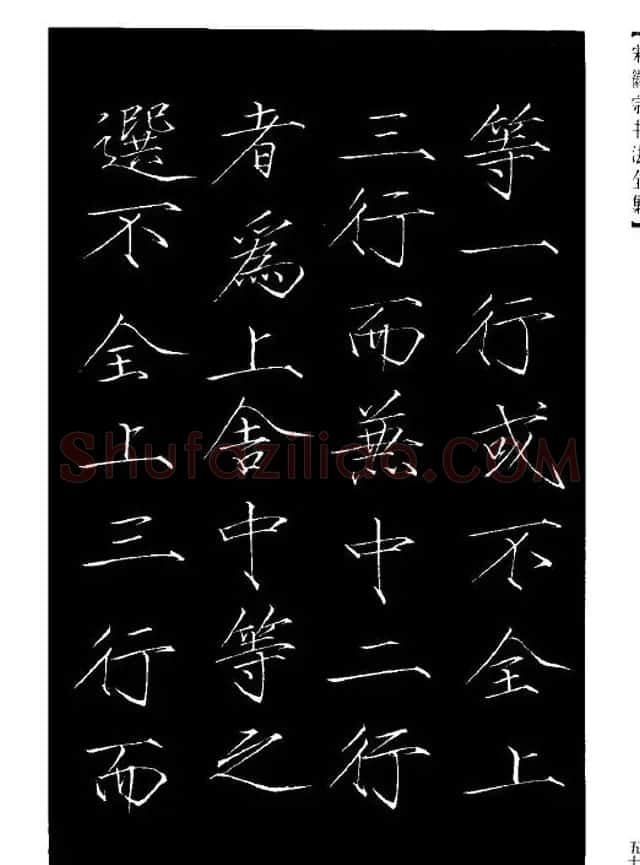 等一行或不全上
三行而兼中二行
者為上舍中等之
選不全上三行而
Shufaziliao.COM